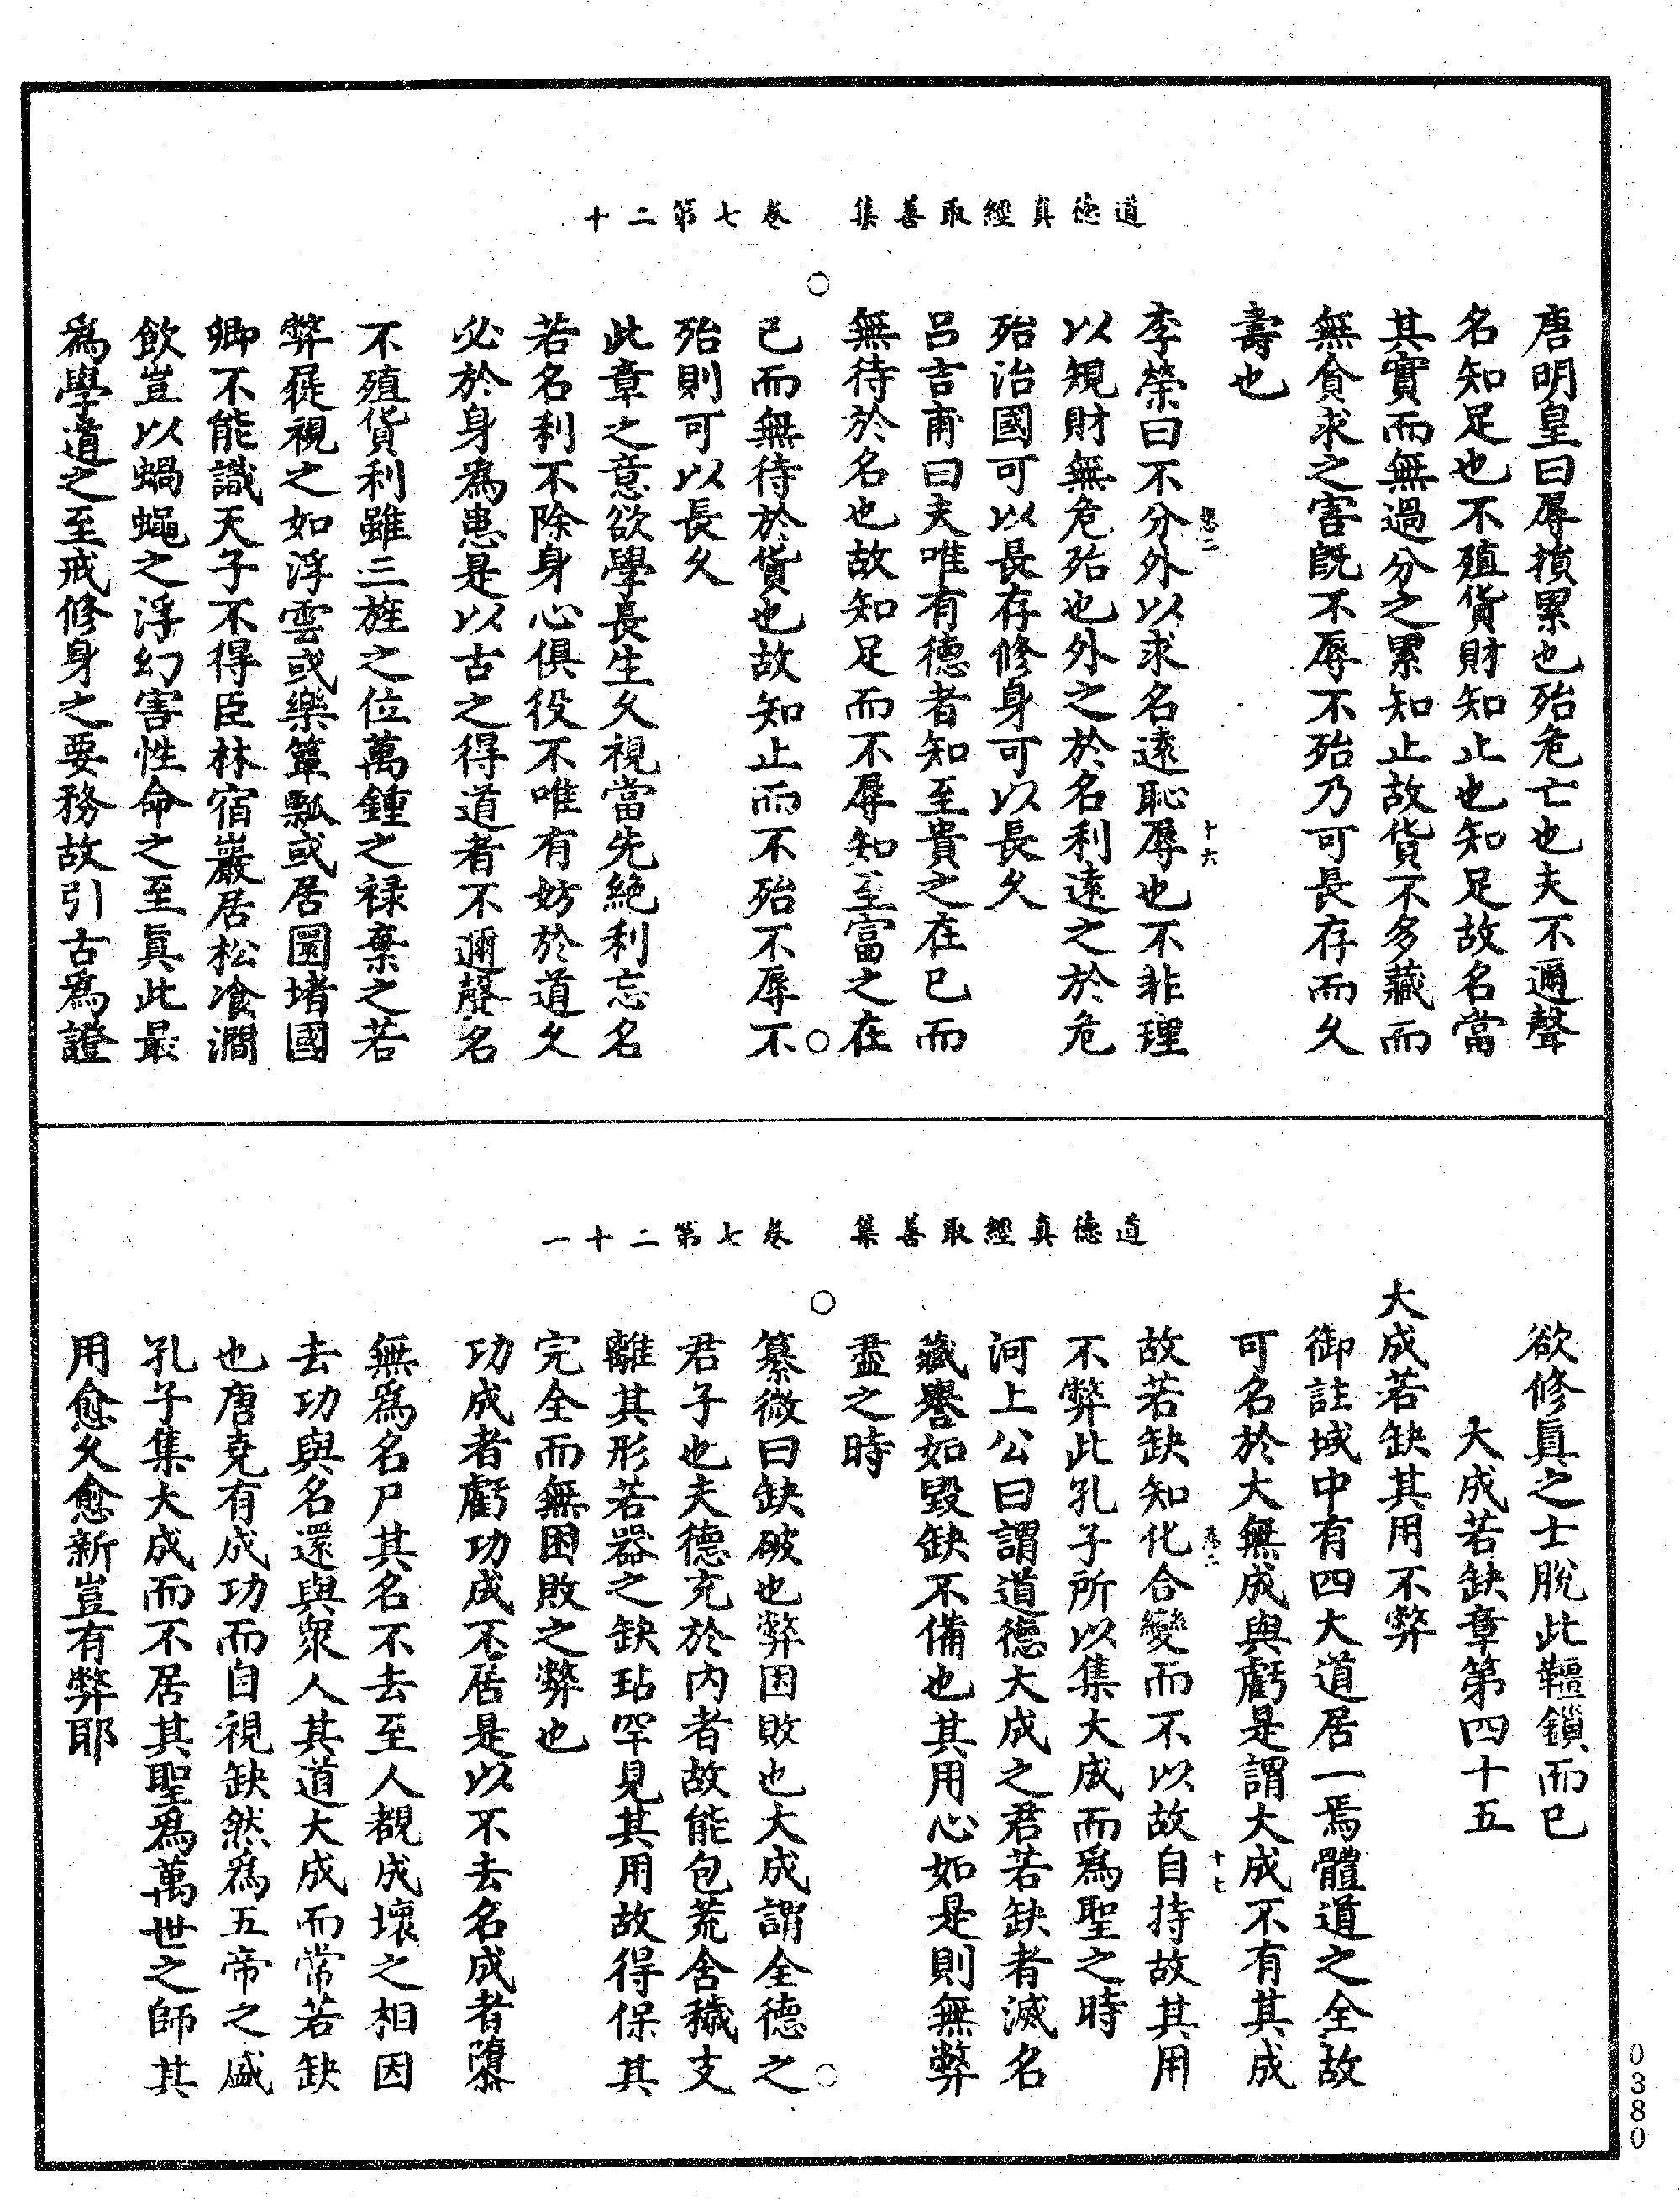 道德真經取善集　卷七第二十
唐明皇曰辱損累也殆危亡也夫不邇聲
名知足也不殖貨財知止也知足故名當
其實而無過分之累知止故貨不多藏而
無貪求之害旣不辱不殆乃可長存而久
壽也
李榮曰不分外以求名遠恥辱也不非理
以規財無危殆也外之於名利遠之於危
殆治國可以長存修身可以長久
呂吉甫曰夫唯有德者知至貴之在已而
無待於名也故知足而不辱知至富之在
已而無待於貨也故知止而不殆不辱不
殆則可以長久
此章之意欲學長生久視當先絶利忘名
若名利不除身心俱役不唯有妨於道久
必於身為患是以古之得道者不邇聲名
不殖貨利雖三旌之位萬鍾之祿棄之若
弊屣視之如浮雲或樂簞瓢或居圜堵國
卿不能識天子不得臣林宿巖居松飡澗
飲豈以蝸蠅之浮幻害性命之至眞此最
爲學道之至戒修身之要務故引古爲證
十六
道德真經取善集　卷七第二十一
欲修眞之士脫此韁鎖而已
大成若缺章第四十五
大成若缺其用不弊
御註域中有四大道居一焉體道之全故
可名於大無成與虧是謂大成不有其成
故若缺知化合變而不以故自持故其用
不弊此孔子所以集大成而爲聖之時
河上公曰謂道德大成之君若缺者滅名
藏譽如毀缺不備也其用心如是則無弊
盡之時
纂微曰缺破也弊困敗也大成謂全德之
君子也夫德充於内者故能包荒含穢支
離其形若器之缺玷罕見其用故得保其
完全而無困敗之弊也
功成者虧功成不居是以不去名成者隳
無爲名尸其名不去至人覩成壞之相因
去功與名還與衆人其道大成而常若缺
也唐堯有成功而自視缺然爲五帝之盛
孔子集大成而不居其聖爲萬世之師其
用愈久愈新豈有弊耶
十七
0380